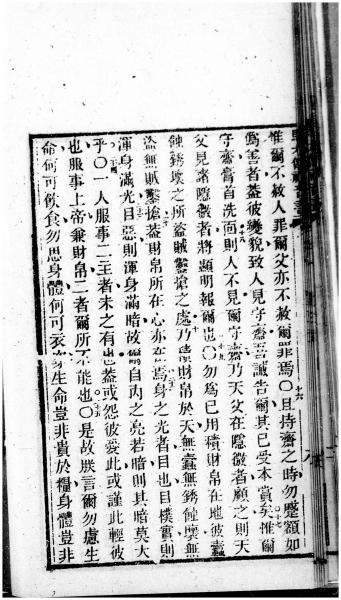 惟爾不赦人罪爾父亦不赦爾罪焉〇十六且持齋之時勿蹙額如
偽善者蓋彼變貌致人見守齋吾誠告爾其已受本賞矣十七惟爾
守齋膏首洗面十八則人不見爾守齋乃天父在隱微者顧之則天
父見諸隱微者將顯明報爾也〇十九勿為己用積財帛在地彼蠹
蝕銹壞之所盜賊鑿搶之處乃積財帛於天無蠹無銹蝕壞無
盜無賊鑿搶蓋財帛所在心亦在焉身之光者目也目樸實則
渾身滿光目惡則渾身滿暗故爾自內之亮若暗則其暗莫大
乎〇一人服事二主者未之有也蓋或怨彼愛此或謹此輕彼
也服事上帝兼財帛二者爾所不能也〇是故朕言爾勿慮生
命何可飲食勿思身體何可衣 生命豈非貴於糧身體豈非